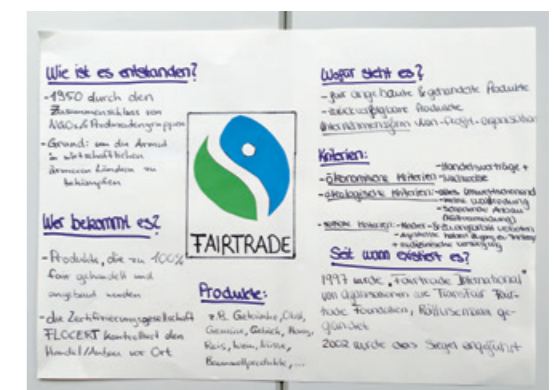 Wie ist es entstanden?
-1950 durch den
Zusammenschluss von
NGOs & Produzentengruppen
-Grund: um die Armut
in wirtschaftlichen
ärmeren Ländern zu
bekämpfen
Wer bekommt es?
-Produkte, die zu 100%
fair gehandelt und
angebaut werden
-die Zertifizierungsgesellschaft
FLOCERT kontrolliert den
Handel/Anbau vor Ort
FAIRTRADE
Produkte:
z.B. Getränke, Obst,
Gemüse, Gebäck, Honig,
Reis, Wein, Nüsse,
Baumwollprodukte, ...
Wofür steht es?
-für angebaute & gehandelte Produkte
-rückverfolgbare Produkte
Unternehmensform: Non-Profit-Organisation
Kriterien:
-Handelsverträge +
-ökonomische Kriterien
-ökologische Kriterien:
-soziale Kriterien:
+ medizinische Versorgung
Seit wann existiert es?
1997 wurde „Fairtrade International"
von Organisationen wie TransFair Fair-
trade Foundation, gegründet
2002 wurde das Siegel eingeführt